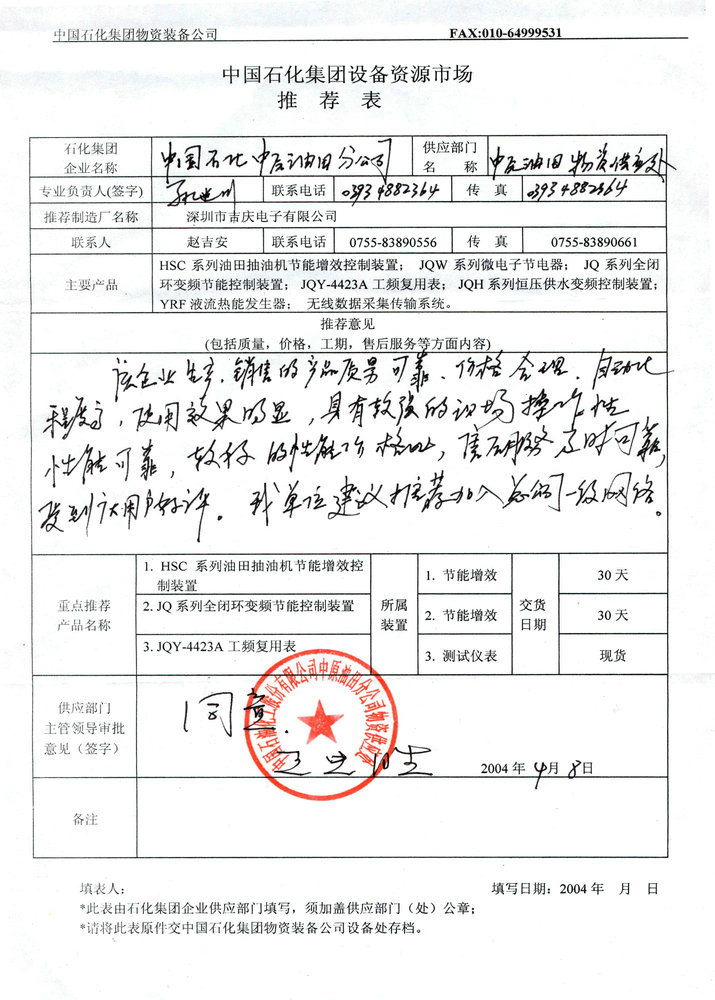 中国石化集团物资装备公司 FAX:010-64999531
中国石化集团设备资源市场
推 荐 表
石化集团
企业名称
中国石化中原油田分公司
供应部门
名 称
中原油田物资供应处
专业负责人(签字)
联系电话
0393 4882364
传 真
0393 4882364
推荐制造厂名称
深圳市吉庆电子有限公司
联系人
赵吉安
联系电话
0755-83890556
传 真
0755-83890661
主要产品
HSC 系列油田抽油机节能增效控制装置; JQW 系列微电子节电器; JQ 系列全闭
环变频节能控制装置; JQY-4423A 工频复用表; JQH 系列恒压供水变频控制装置;
YRF 液流热能发生器; 无线数据采集传输系统。
推荐意见
(包括质量,价格,工期,售后服务等方面内容)
该企业生产、销售的产品质量可靠、价格合理、自动化
程度高,使用效果明显,具有较强的现场操作性
性能可靠,较好的性能价格比,售后服务及时可靠,
受到广大用户好评。我单位建议推荐加入总部一级网络。
重点推荐
产品名称
1. HSC 系列油田抽油机节能增效控
制装置
2. JQ 系列全闭环变频节能控制装置
3. JQY-4423A 工频复用表
所属
装置
1. 节能增效
2. 节能增效
3. 测试仪表
交货
日期
30 天
30 天
现货
供应部门
主管领导审批
意见(签字)
同意.
中国石油化工股份有限公司中原油田分公司物资供应处
2004 年 4月 8日
备注
填表人: 填写日期: 2004 年 月 日
*此表由石化集团企业供应部门填写,须加盖供应部门(处)公章;
*请将此表原件交中国石化集团物资装备公司设备处存档。